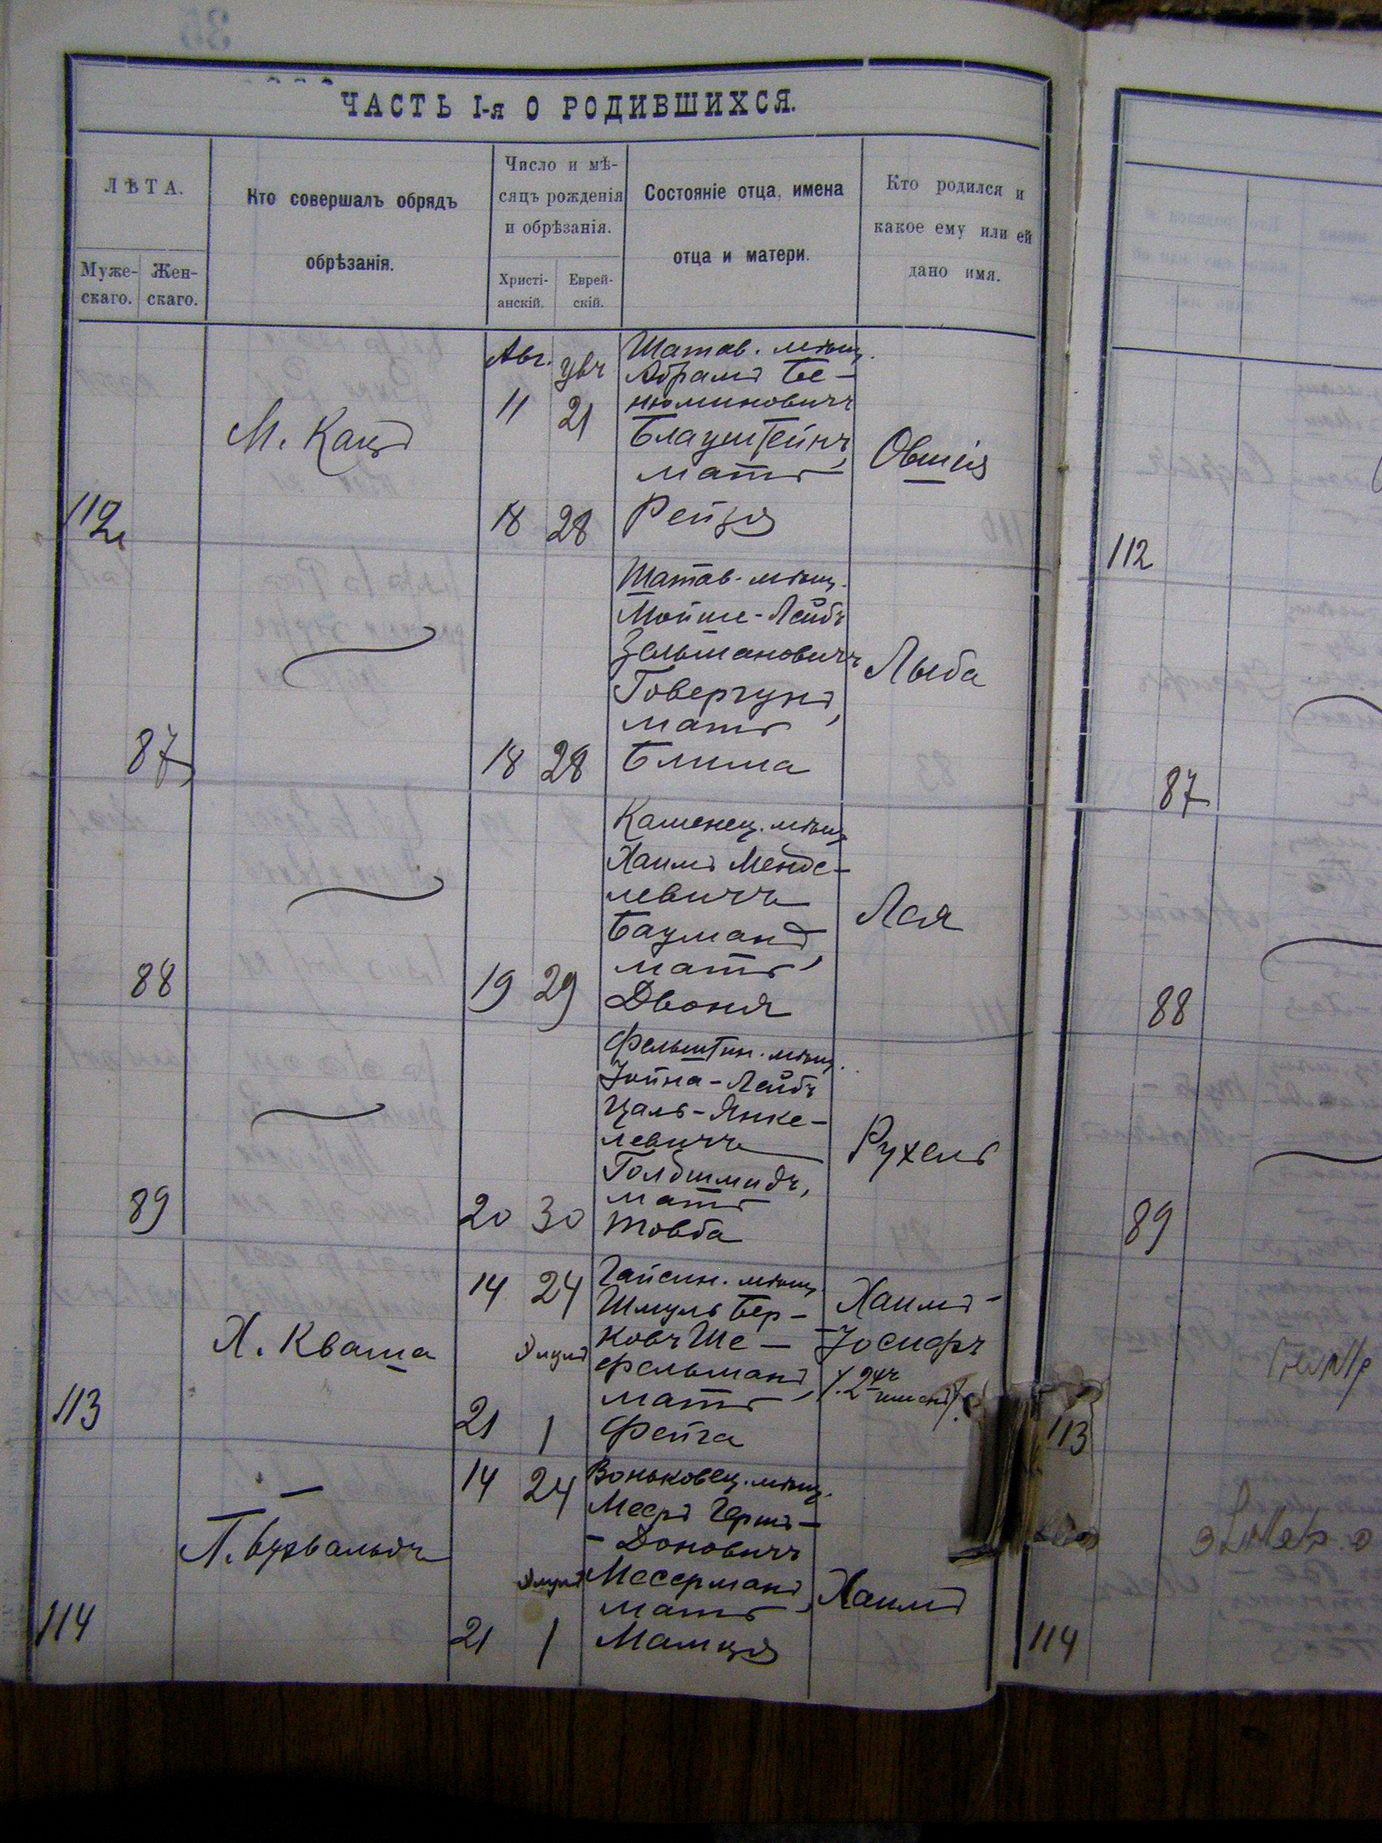 ЧАСТЬ I-я О РОДИВШИХСЯ.
ЛѢТА.
Муже-
скаго.
Жен-
скаго.
Кто совершалъ обрядъ
обрѣзанія.
Число и мѣ-
сяцъ рожденія
и обрѣзанія.
Христі-
анскій.
Еврей-
скій.
Состояніе отца, имена
отца и матери.
Кто родился и
какое ему или ей
дано имя.
112
М. Кацъ
Авг.
11 21
18 28
Шатав. мѣщ.
Абрамъ Бе-
нюминовичъ
Блауштейнъ,
мать
Рейзя
Овшія
112
87
18 28
Шатав. мѣщ.
Мойше-Лейбъ
Зельмановичъ
Говергунъ,
мать
Блима
Лыба
87
88
19 29
Каменец. мѣщ
Хаимъ Менде-
левичъ
Бауманъ,
мать
Двоня
Лея
88
89
20 30
Фельштин. мѣщ.
Іойна-Лейбъ
Цаль-Янке-
левичъ
Голдшмидъ,
мать
Товба
Рухель
89
113
Х. Кваша
14 24
Элулъ
21 1
Гайсин. мѣщ
Шмуль Бер-
ковъ Ше-
фельманъ,
мать
Фейга
Хаимъ-
-Іосифъ
113
114
14 24
Элулъ
21 1
Воньковец. мѣщ.
Мееръ Герш-
-Доновичъ
Месерманъ,
мать
Мамця
Хаимъ
114